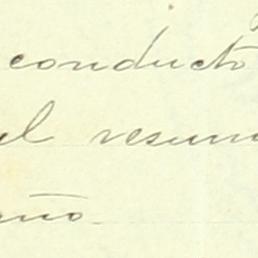 conducto
el resum
año